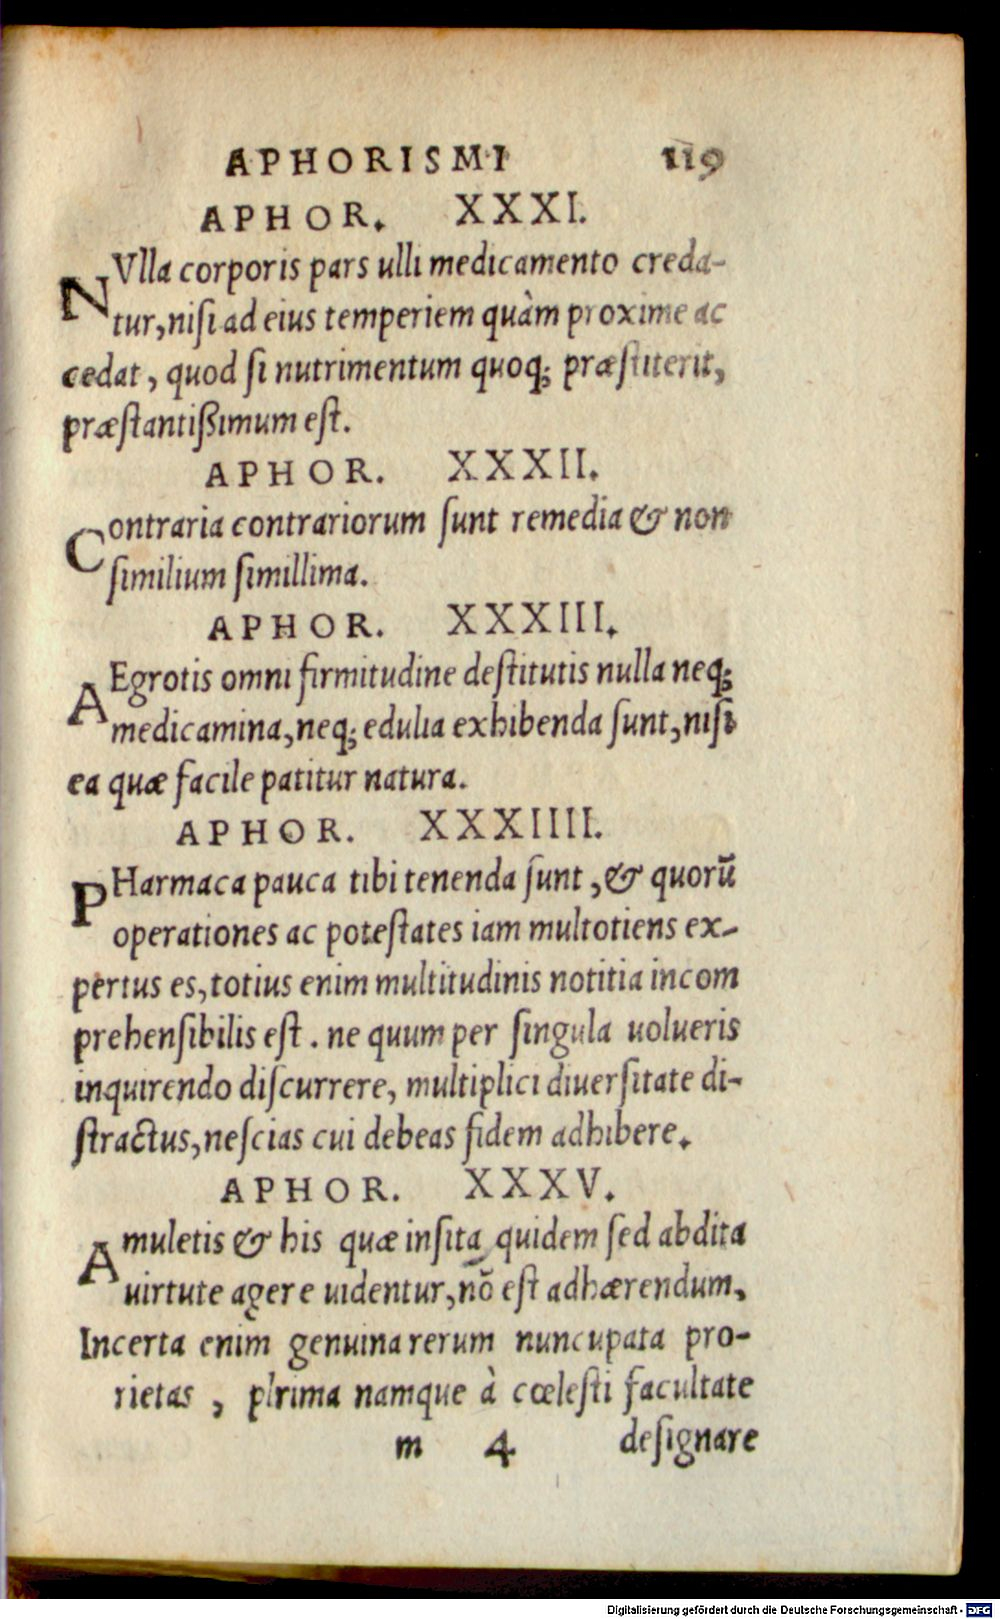 APHORISMI 119
APHOR. XXXI.
NVlla corporis pars ulli medicamento creda-
tur, nisi ad eius temperiem quàm proxime ac
cedat, quod si nutrimentum quoq; præstiterit,
præstantißimum est.
APHOR. XXXII.
Contraria contrariorum sunt remedia & non
similium simillima.
APHOR. XXXIII.
AEgrotis omni firmitudine destitutis nulla neq;
medicamina, neq; edulia exhibenda sunt, nisi
ea quæ facile patitur natura.
APHOR. XXXIIII.
PHarmaca pauca tibi tenenda sunt, & quorũ
operationes ac potestates iam multotiens ex-
pertus es, totius enim multitudinis notitia incom
prehensibilis est. ne quum per singula uolueris
inquirendo discurrere, multiplici diuersitate di-
stractus, nescias cui debeas fidem adhibere.
APHOR. XXXV.
Amuletis & his quæ insita quidem sed abdita
uirtute agere uidentur, nõ est adhærendum,
Incerta enim genuina rerum nuncupata pro-
rietas, plrima namque à cœlesti facultate
m 4 designare
Digitalisierung gefördert durch die Deutsche Forschungsgemeinschaft - DFG